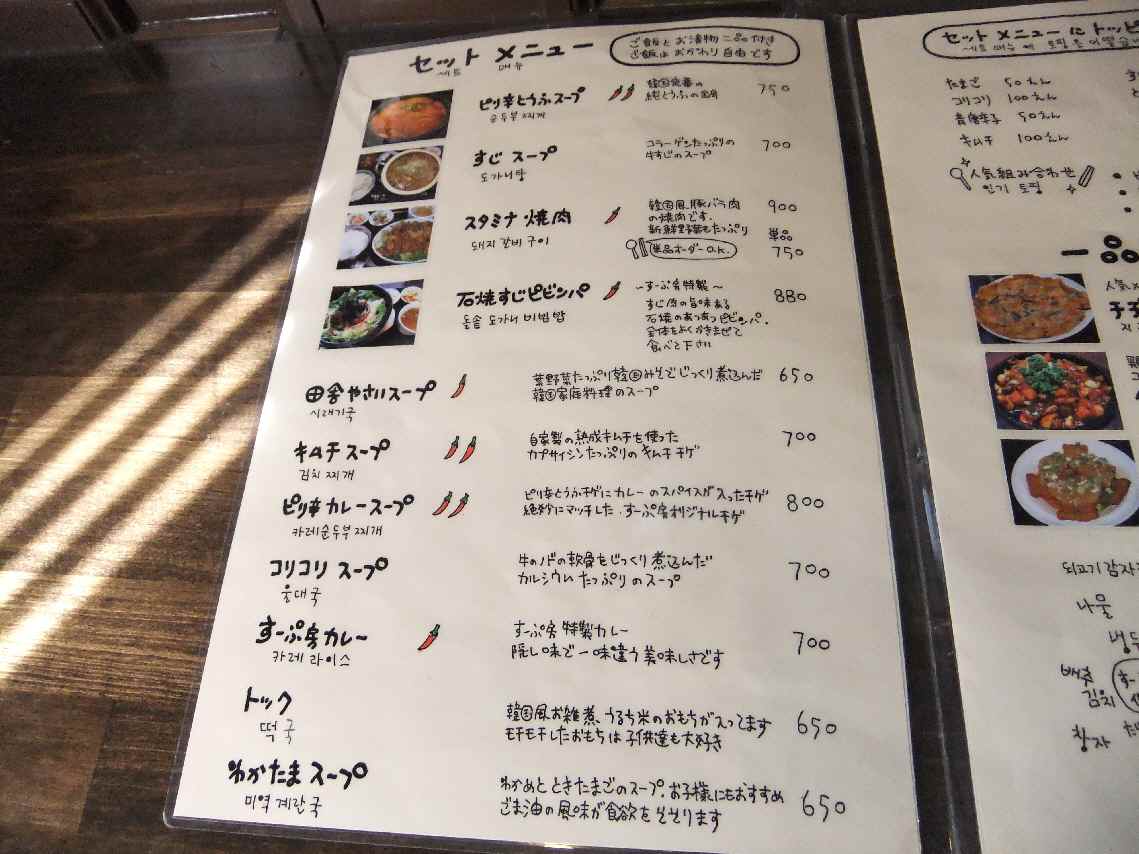 セット メニュー
세트 메뉴
ご飯とお漬物二品付き
ご飯はおかわり自由です
ピリ辛とうふスープ
순두부 찌개
韓国定番の
純とうふの鍋
750
すじ スープ
도가니탕
コラーゲンたっぷりの
牛すじのスープ
700
スタミナ 焼肉
돼지 갈비 구이
韓国風、豚バラ肉
の焼肉です。
新鮮野菜もたっぷり
単品オーダーO.K.
900
単品
750
石焼すじビビンバ
돌솥 도가니 비빔밥
〜すーぷ房特製〜
すじ肉の旨味ある
石焼のあつあつビビンバ。
全体をよくかきまぜて
食べて下さい
880
田舎やさいスープ
시래기국
葉野菜たっぷり韓国みそでじっくり煮込んだ
韓国家庭料理のスープ
650
キムチ スープ
김치 찌개
自家製の熟成キムチを使った
カプサイシンたっぷりのキムチチゲ
700
ピリ辛カレースープ
카레순두부찌개
ピリ辛とうふチゲにカレーのスパイスが入ったチゲ
絶妙にマッチした、すーぷ房オリジナルチゲ
800
コリコリ スープ
牛のノドの軟骨をじっくり煮込んだ
カルシウムたっぷりのスープ
700
すーぷ房カレー
카레 라이스
すーぷ房 特製カレー
隠し味で一味違う美味しさです
700
トック
떡국
韓国風お雑煮、うるち米のおもちが入ってます
モチモチしたおもちは子供達も大好き
650
わかたまスープ
미역 계란국
わかめと ときたまごのスープ。お子様にもおすすめ
ごま油の風味が食欲をそそります
650
セット メニュー に トッピ
세트 메뉴 에 토핑
たまご 50えん
コリコリ 100えん
青唐辛子 50えん
キムチ 100えん
人気組み合わせ
인기 토핑
一品
人気
チヂ
지
鶏
되고기 감자
나물
냉두
배추
김치
창자